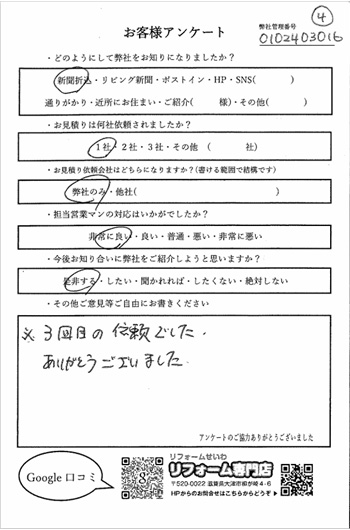 ④
お客様アンケート
弊社管理番号
0102403016
・どのようにして弊社をお知りになりましたか？
新聞折込・リビング新聞・ポストイン・HP・SNS(　　　)
通りがかり・近所にお住まい・ご紹介(　　　様)・その他(　　　)
・お見積りは何社依頼されましたか？
1社・2社・3社・その他　(　　　社)
・お見積り依頼会社はどちらになりますか？(書ける範囲で結構です)
弊社のみ・他社(　　　)
・担当営業マンの対応はいかがでしたか？
非常に良い・良い・普通・悪い・非常に悪い
・今後お知り合いに弊社をご紹介しようと思いますか？
是非する・したい・聞かれれば・したくない・絶対しない
・その他ご意見等ご自由にお書きください
※3回目の依頼でした.
ありがとうございました.
アンケートのご協力ありがとうございました
Google 口コミ
リフォームせいわ
リフォーム専門店
〒520-0022 滋賀県大津市柳が崎4-6
HPからのお問合せはこちらからどうぞ▶